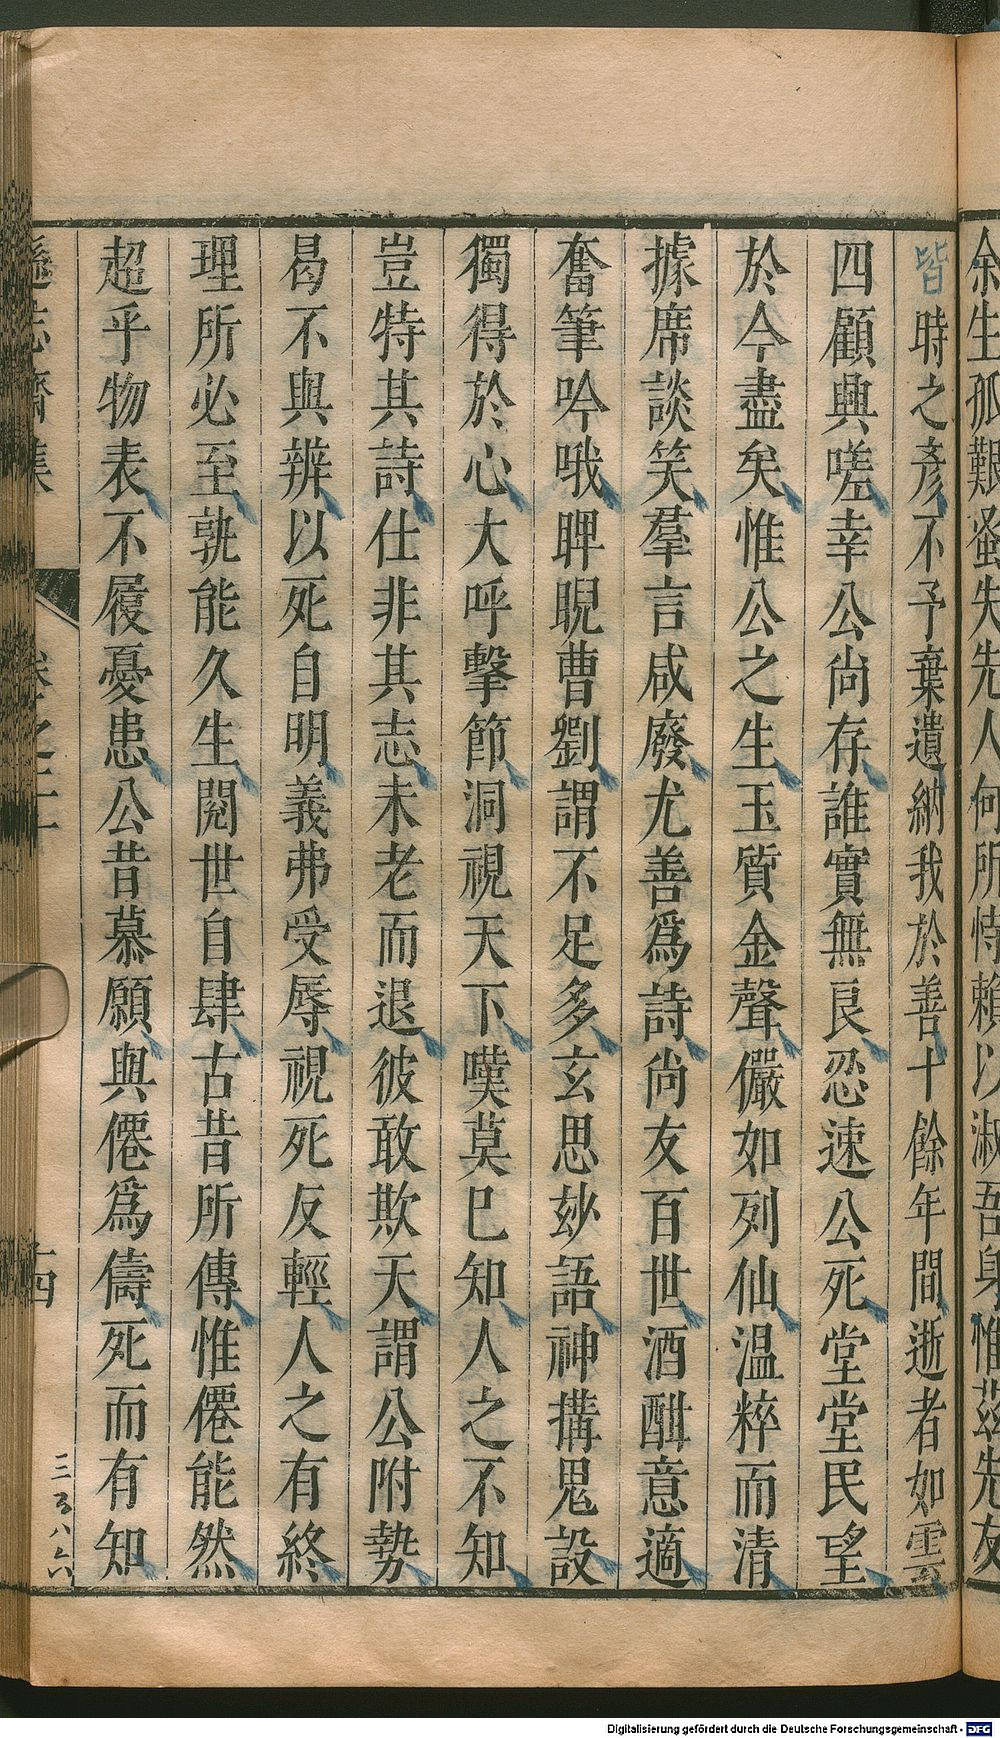 余生孤艱蚤失先人何所恃賴以淑吾與惟茲先友
皆時之彥不予棄遺納我於善十餘年間逝者如雲
四顧興嗟幸公尚存誰實無良忍速公死堂堂民望
於今盡矣惟公之生玉質金聲儼如列仙温粹而清
據席談笑羣言咸廢尤善爲詩尚友百世酒酣意適
奮筆吟哦睥睨曹劉謂不足多玄思玅語神搆鬼設
獨得於心大呼擊節洞視天下嘆莫巳知人之不知
豈特其詩仕非其志未老而退彼敢欺天謂公附勢
曷不與辨以死自明義弗受辱視死反輕人之有終
理所必至孰能久生閱世自肆古昔所傳惟僊能然
超乎物表不履憂患公昔慕願與僊爲儔死而有知
遜志齋集 卷之二十 十四
Digitalisierung gefördert durch die Deutsche Forschungsgemeinschaft - DFG